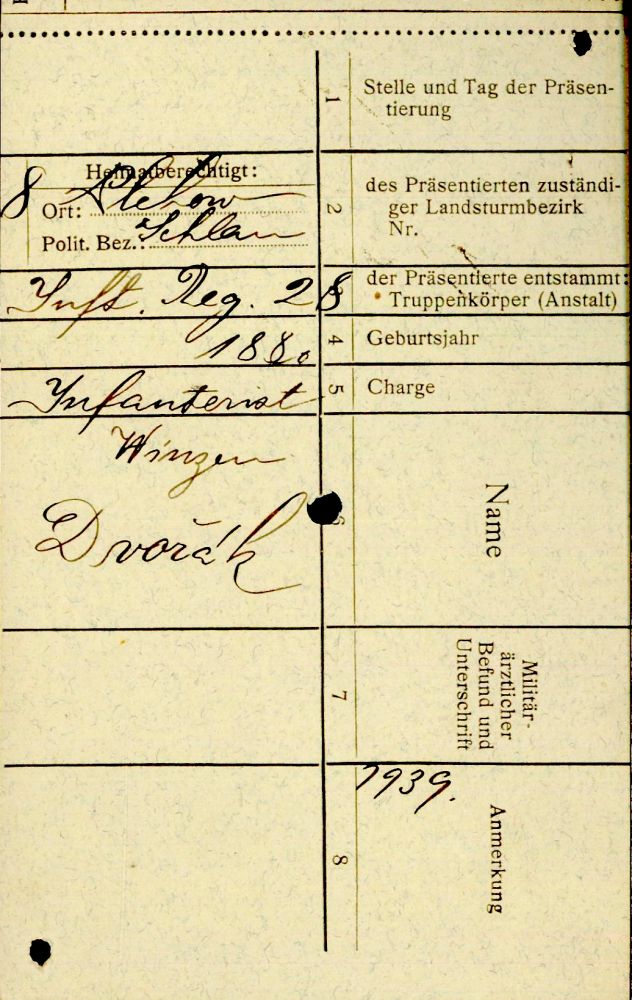 1
Stelle und Tag der Präsen-
tierung
8
Heimatberechtigt:
Ort:
Polit. Bez.: Schlan
2
des Präsentierten zuständi-
ger Landsturmbezirk
Nr.
Inft. Reg. 28
der Präsentierte entstammt:
Truppenkörper (Anstalt)
1880
4
Geburtsjahr
Infanterist
5
Charge
Winzen
Dvořák
6
Name
7
Militär-
ärztlicher
Befund und
Unterschrift
8
1939.
Anmerkung